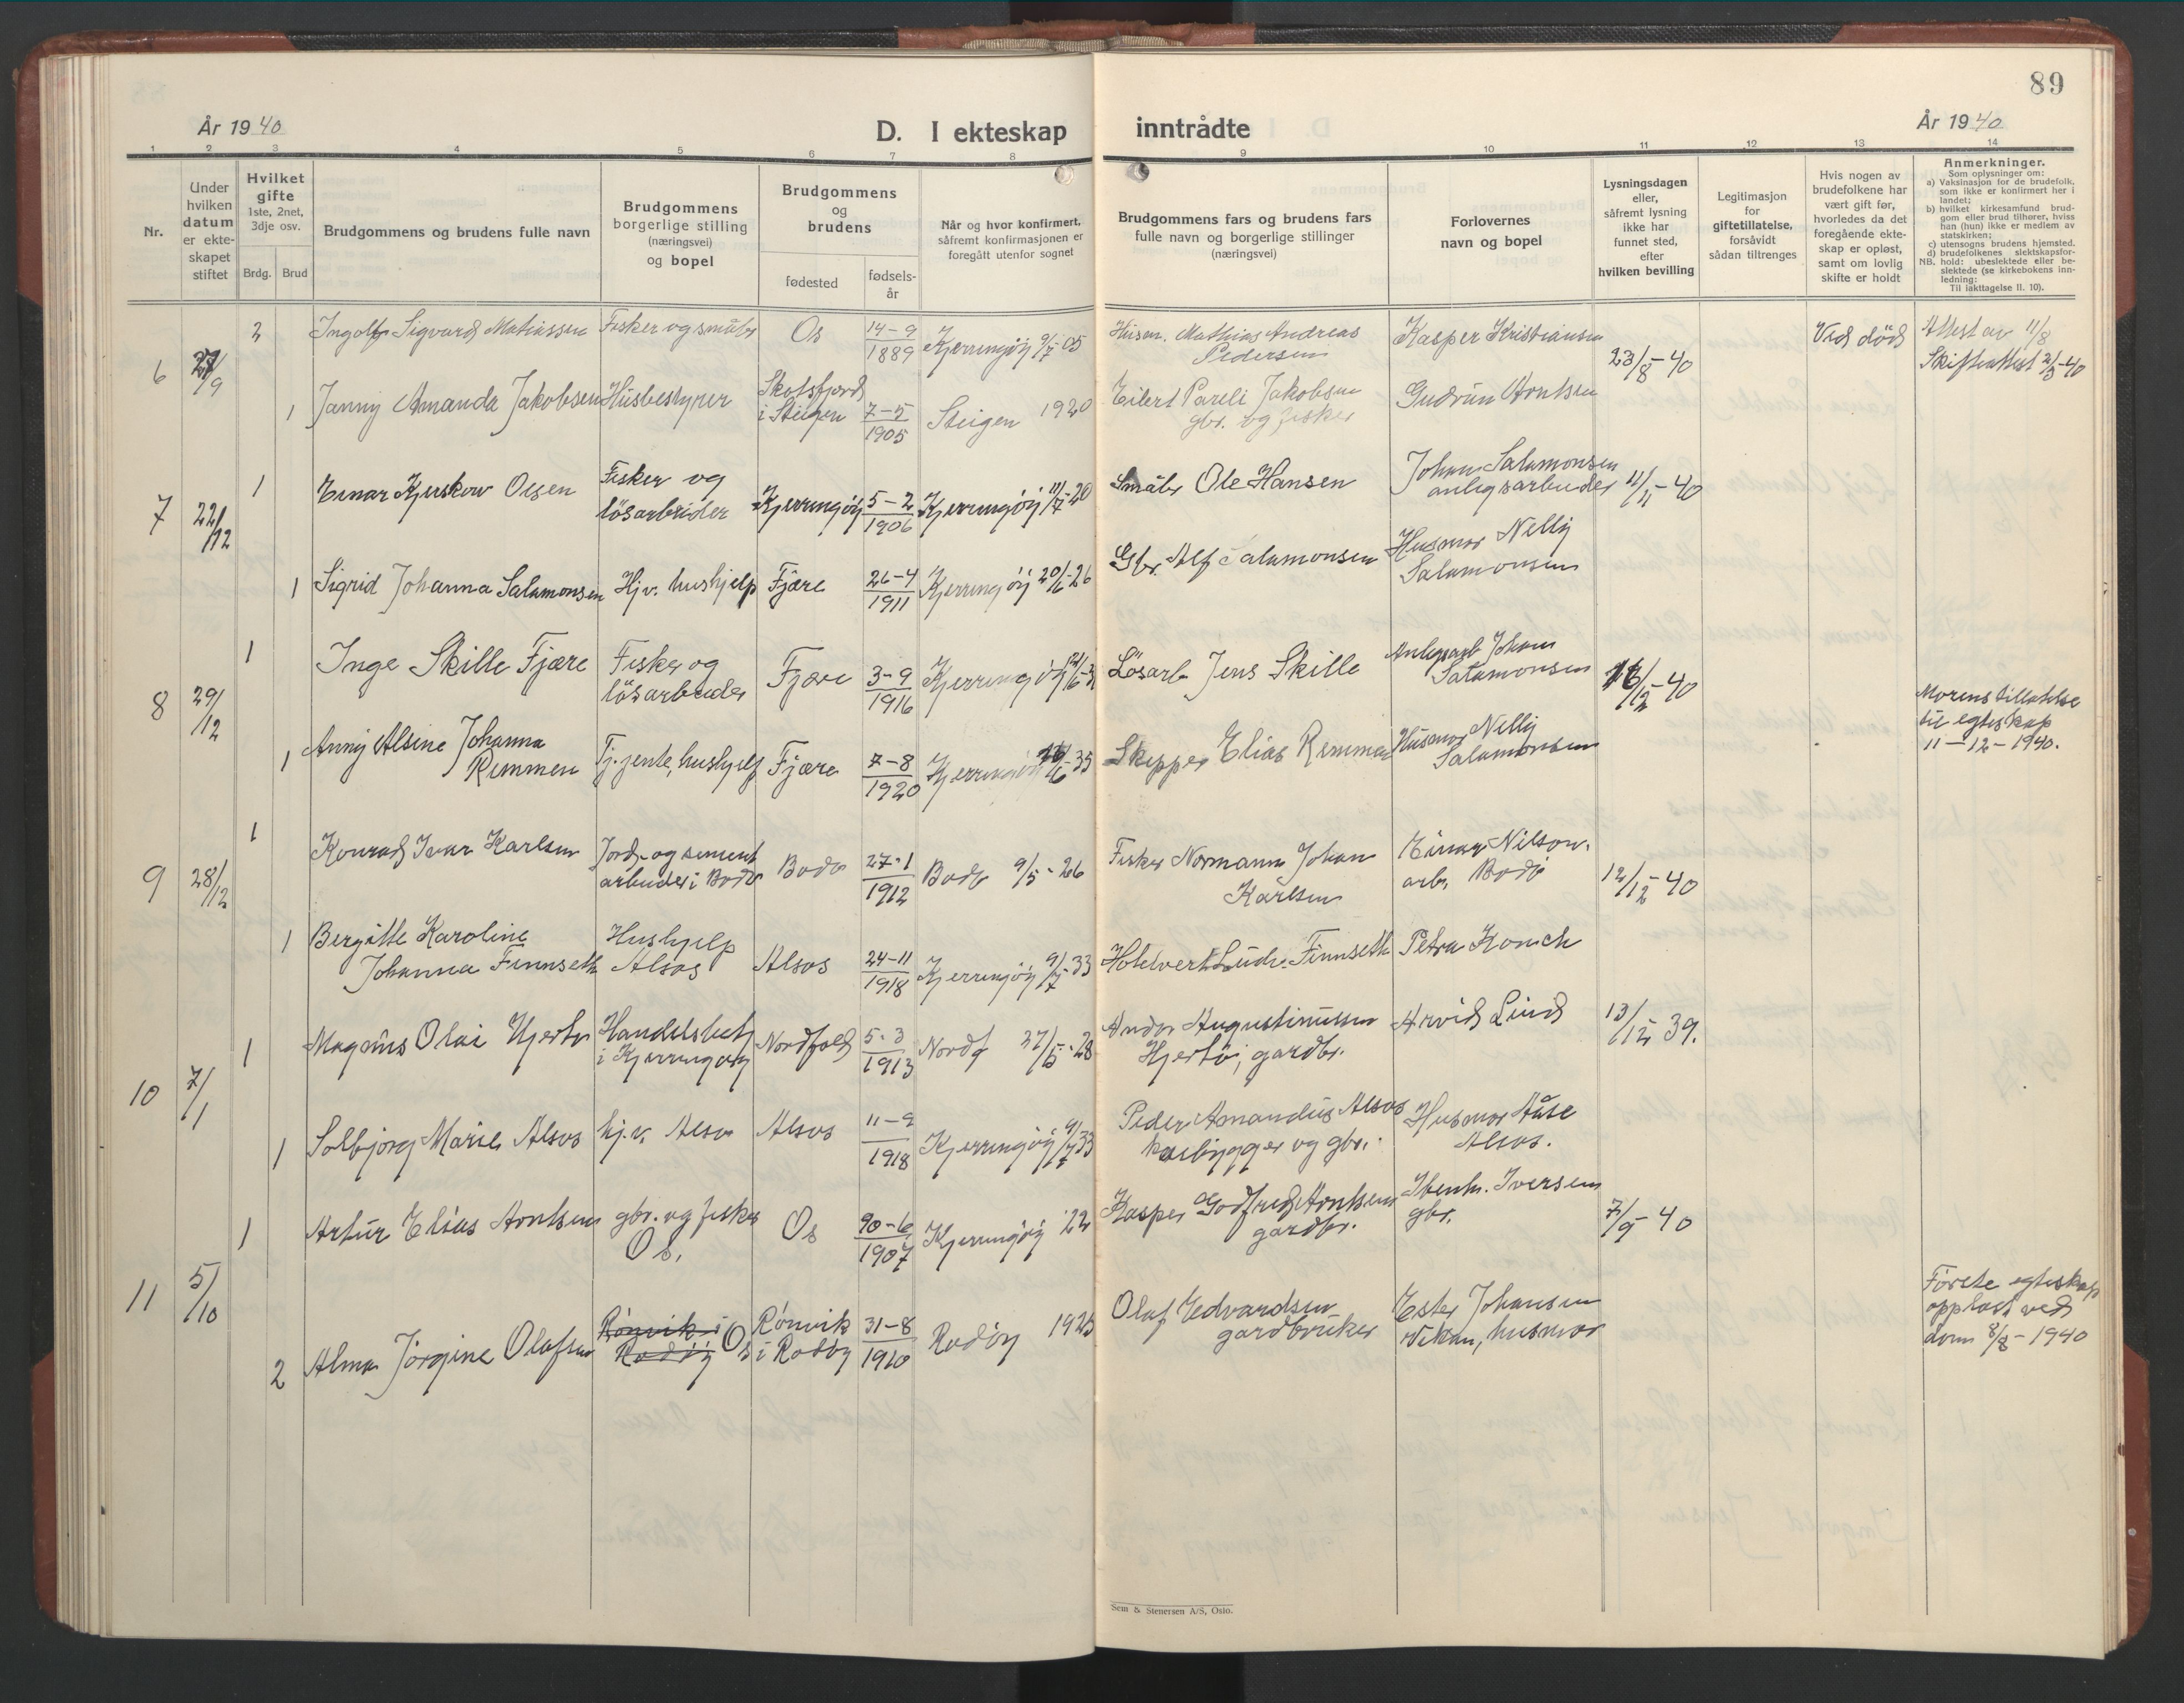 89
År 1940
D. I ekteskap inntrådte
År 1940
1 2 3 4 5 6 7 8 9 10 11 12 13 14
Nr.
Under
hvilken
datum
er ekte-
skapet
stiftet
Hvilket
gifte
1ste, 2net,
3dje osv.
Brdg. Brud
Brudgommens og brudens fulle navn
Brudgommens
borgerlige stilling
(næringsvei)
og bopel
Brudgommens
og
brudens
fødested
fødsels-
år
Når og hvor konfirmert,
såfremt konfirmasjonen er
foregått utenfor sognet
Brudgommens fars og brudens fars
fulle navn og borgerlige stillinger
(næringsvei)
Forlovernes
navn og bopel
Lysningsdagen
eller,
såfremt lysning
ikke har
funnet sted,
efter
hvilken bevilling
Legitimasjon
for
giftetillatelse,
forsåvidt
sådan tiltrenges
Hvis nogen av
brudefolkene har
vært gift før,
hvorledes da det
foregående ekte-
skap er opløst,
samt om lovlig
skifte er holdt
Anmerkninger.
Som oplysninger om:
a) Vaksinasjon for de brudefolk,
som ikke er konfirmert her i
landet;
b) hvilket kirkesamfund brud-
gom eller brud tilhører, hviss
han (hun) ikke er medlem av
statskirken;
c) utensogns brudens hjemsted.
d) brudefolkenes slektskapsfor-
NB. hold: ubeslektede eller be-
slektede (se kirkebokens inn-
ledning:
Til iakttagelse II. 10).
6 27/9
2 Ingolf Sigvard Matiassen Fisker og småbr Os 14-9 1889 Kjerringöy 9/7-05 Mathias Andreas
Pedersen
Kasper Kristiansen 23/8-40 Ved död Attest av 11/8
Skifteattest 2/3-40
1 Janny Amanda Jakobsen Husbestyrer Skotsfjord
i Steigen 7-5 1905 Steigen 1920 Eilert Pareli Jakobsen
gbr. og fisker
Gudrun Arntsen
7 22/12
1 Einar Kjerskow Olsen Fisker og
lösarbeider Kjerringöy 5-2 1906 Kjerringöy 11/7-20 Småbr Ole Hansen Johan Salamonsen
anlegsarbeider 11/11-40
1 Sigrid Johanna Salamonsen Hjv. hushjelp Fjære 26-4 1911 Kjerringöy 20/6-26 Gbr. Alf Salamonsen Husmor Nelly
Salamonsen
8 29/12
1 Inge Skille Fjære Fisker og
lösarbeider Fjære 3-9 1916 Kjerringöy Lösarb Jens Skille Anlegsarb Johan
Salamonsen 16/12-40
1 Anny Alsine Johanna
Remmen Tj. jente, hushjelp Fjære 7-8 1920 Kjerringöy 35 Skipper Elias Remmen Husmor Nelly
Salamonsen
Morens tillatelse
til egteskap
11-12-1940.
9 28/12
1 Konrad Ivar Karlsen Jord- og sement
arbeider i Bodö Bodö 27-1 1912 Bodö 9/5-26 Fisker Normann Johan
Karlsen
Einar Nilson,
arb, Bodö 12/12-40
1 Bergitte Karoline
Johanna Finnseth Hushjelp
Alsos Alsos 24-11 1918 Kjerringöy 9/7-33 Ludv. Finnseth Petra
10 7/1
1 Magnus Olai Hjertö Handelsbetj
i Kjerringöy Nordfold 5-3 1913 Nordf 27/5-28 Augustinussen
Hjertöi, gardbr.
Arvid Lind 13/12 39.
1 Solbjörg Marie Alsos hj.v. Alsos Alsos 11-9 1918 Kjerringöy 9/7 33 Peder Amandus Alsos
og gbr.
Husmor Aase
Alsos.
11 5/10
1 Artur Elias Arntsen gbr. og fisker
Os, Os 90-6 1907 Kjerringöy 22 Kasper Godfred Arntsen
gardbr.
Iversen
gbr. 7/9-40
2 Alma Jörgine Olafsen Rönvik i
Rödöy Os Rönvik
i Rödöy 31-8 1910 Rödöy 1925 Olaf Edvardsen
gardbruker
Ester Johansen
husmor
Förste egteskap
opplöst ved
dom 8/8-1940
Sem & Stenersen A/S, Oslo.